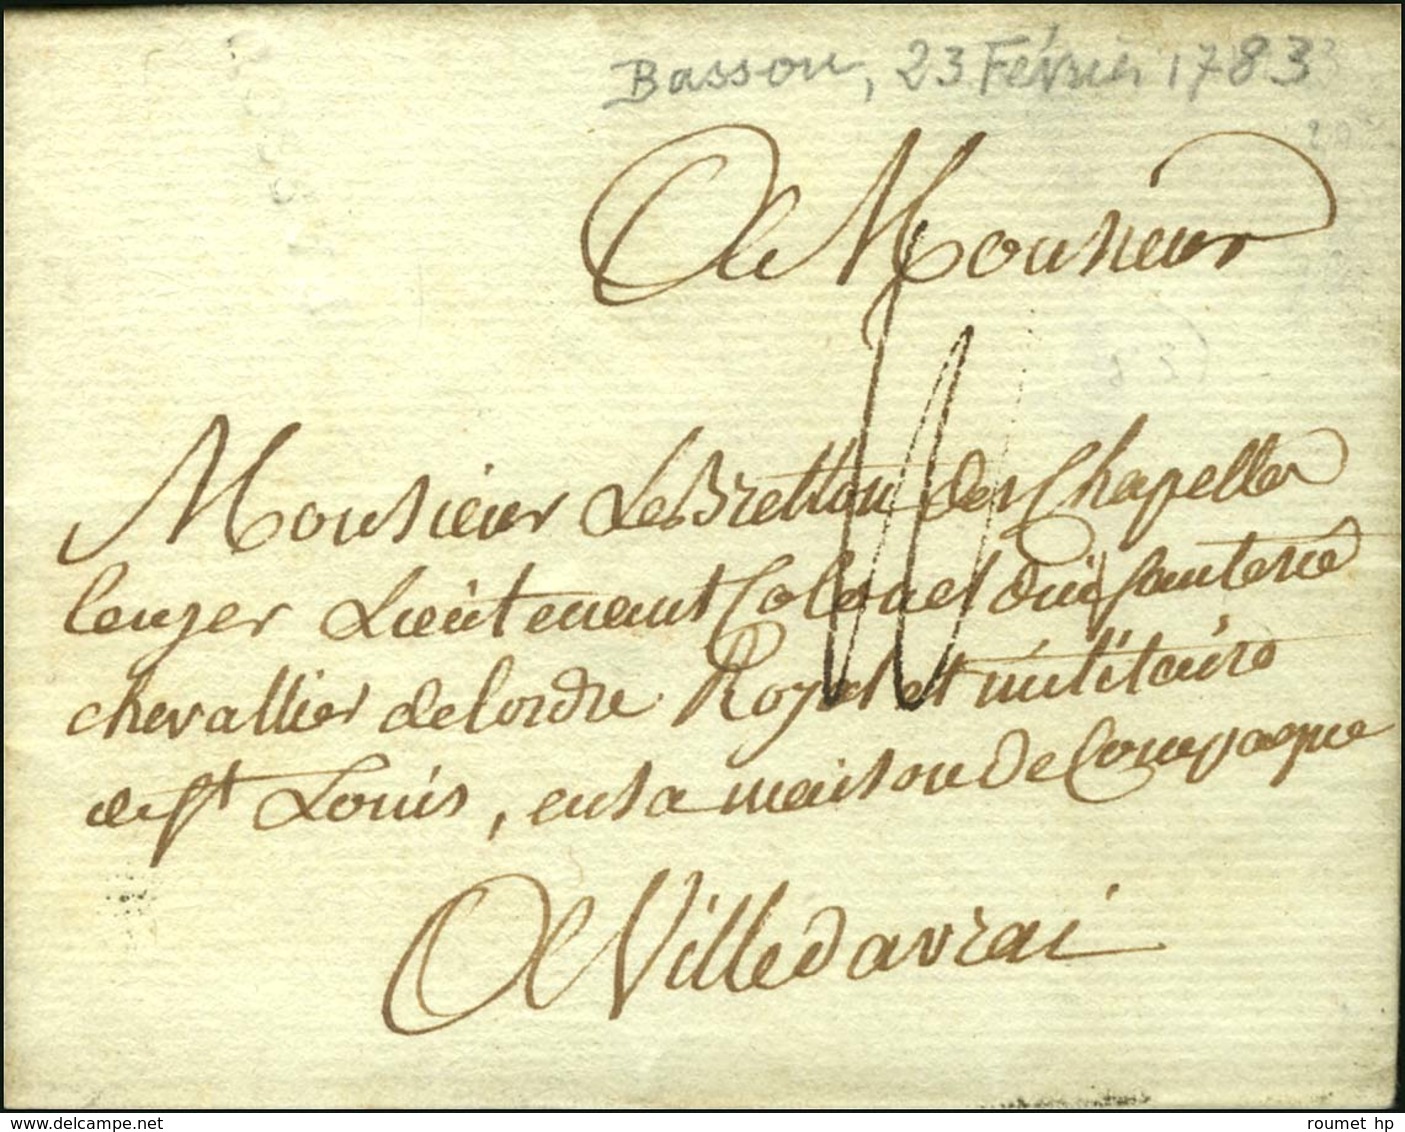 Basson, 23 Février 1783
A Monsieur
Monsieur Le Bretton des Chapelles
Lieutenant Colonel dinfanterie
chevallier de Lordre Royal et militaire
de St Louis, en sa maison de Compagne
A Villedavrai
roumet hp